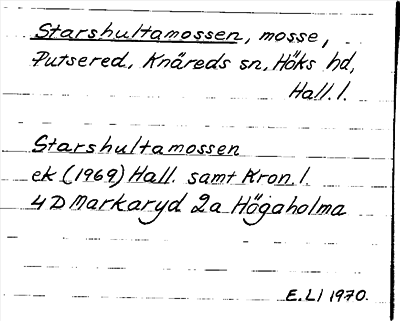 Starshultamossen, mosse,
Putsered, Knäreds sn, Höks hd,
Hall. l.
Starshultamossen
ek (1969) Hall. samt Kron. l.
4D Markaryd 2a Högaholma
E. LI 1970.